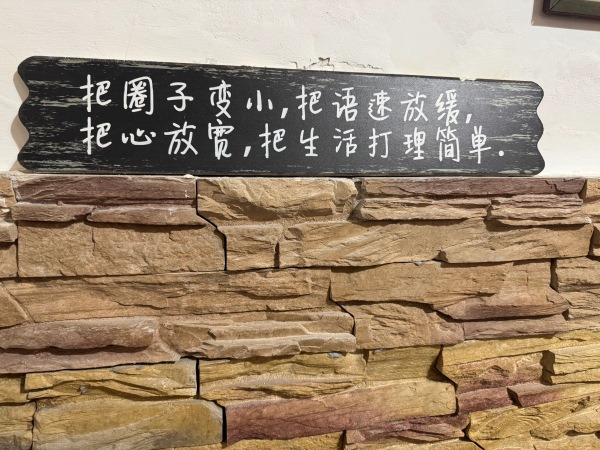 把圈子变小,把语速放缓,
把心放宽,把生活打理简单.